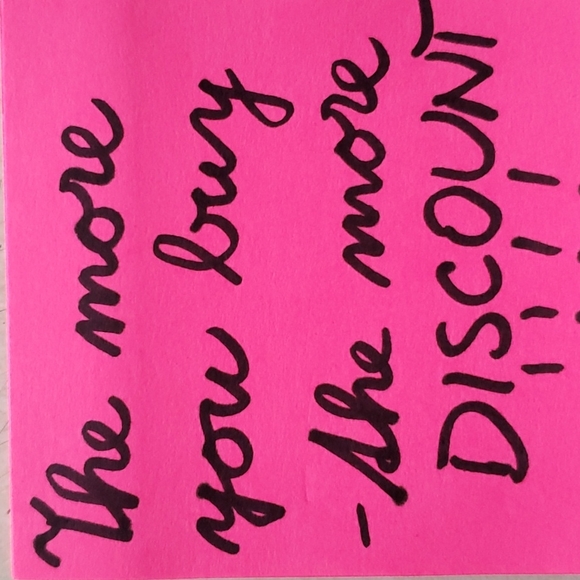 The more
you buy
- the more
DISCOUNT